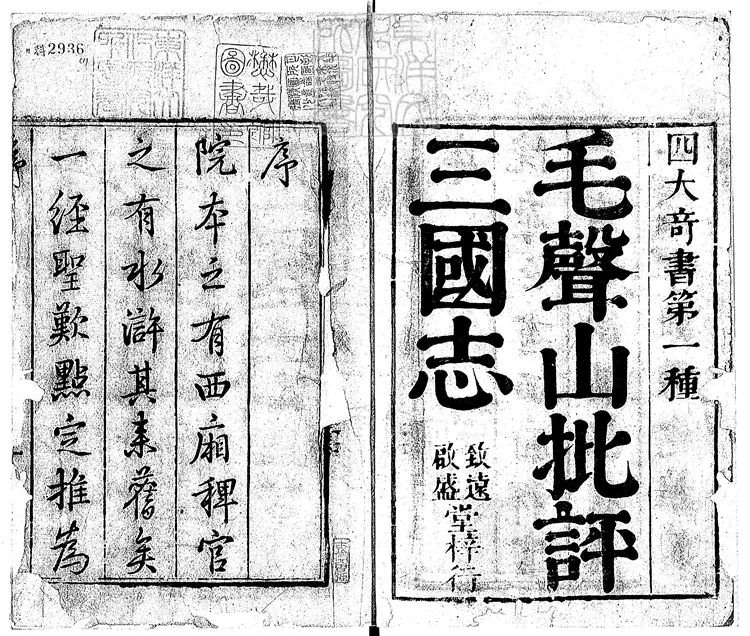 四大奇書第一種
毛聲山批評
三國志
致遠
啟盛
堂梓行
序
院本之有西廂稗官
之有水滸其來舊矣
一經聖歎點定推為
科2936
(1)